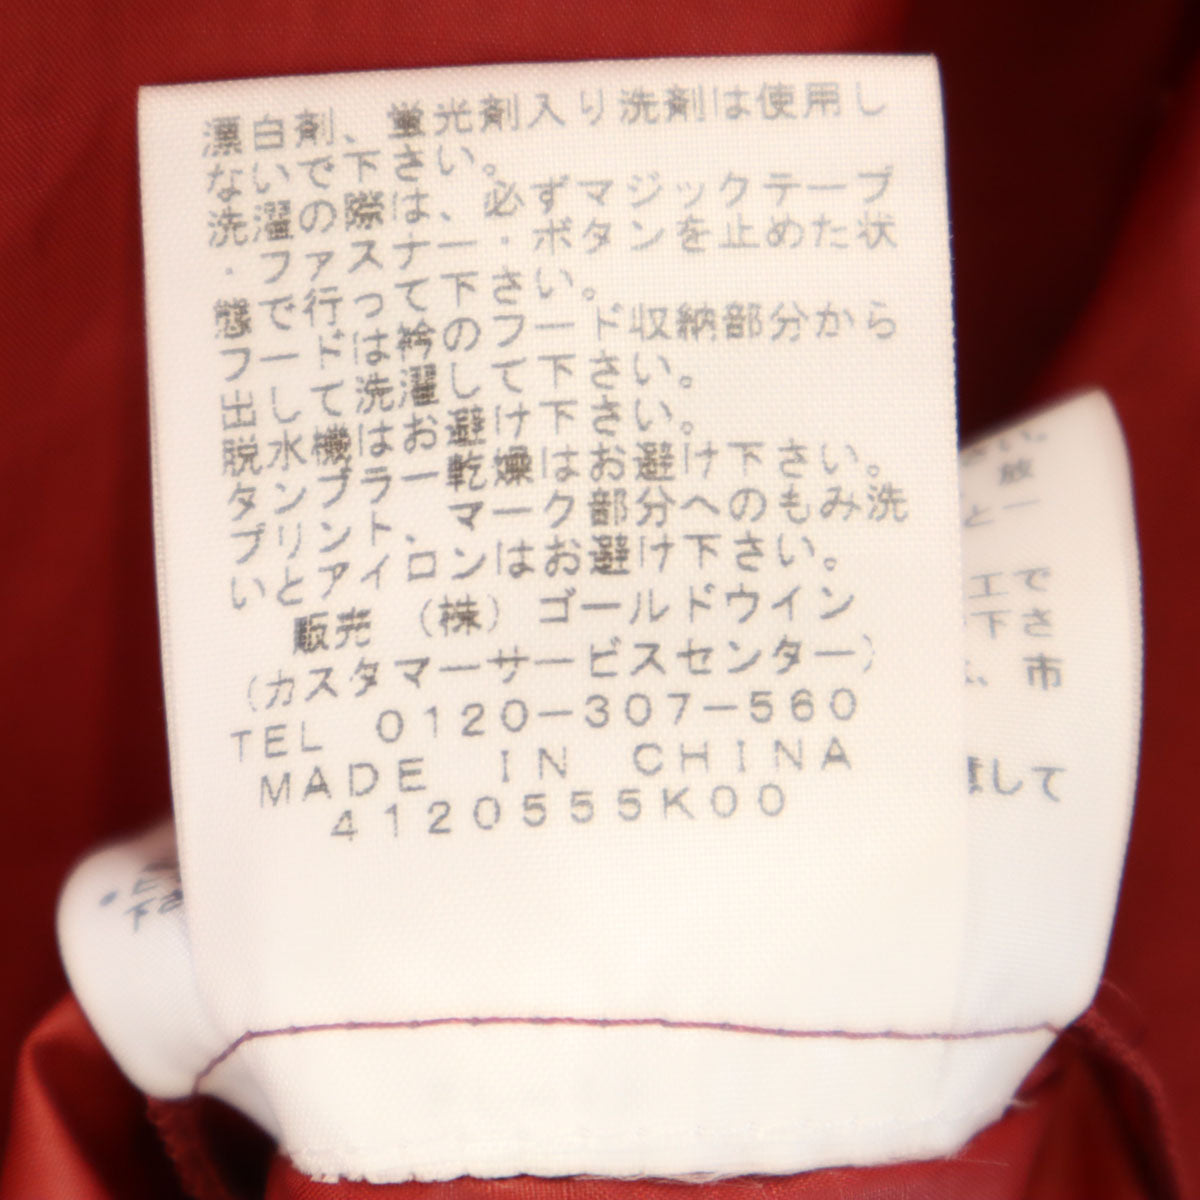 漂白剤、蛍光剤入り洗剤は使用し
ないで下さい。
洗濯の際は、必ずマジックテープ
・ファスナー・ボタンを止めた状
態で行って下さい。
フードは衿のフード収納部分から
出して洗濯して下さい。
脱水機はお避け下さい。
タンブラー乾燥はお避け下さい。
プリント、マーク部分へのもみ洗
いとアイロンはお避け下さい。
販売 (株) ゴールドウイン
(カスタマーサービスセンター)
TEL 0120-307-560
MADE IN CHINA
4120555K00
い。
放
と一
工で
下さ
、市
して
下さ